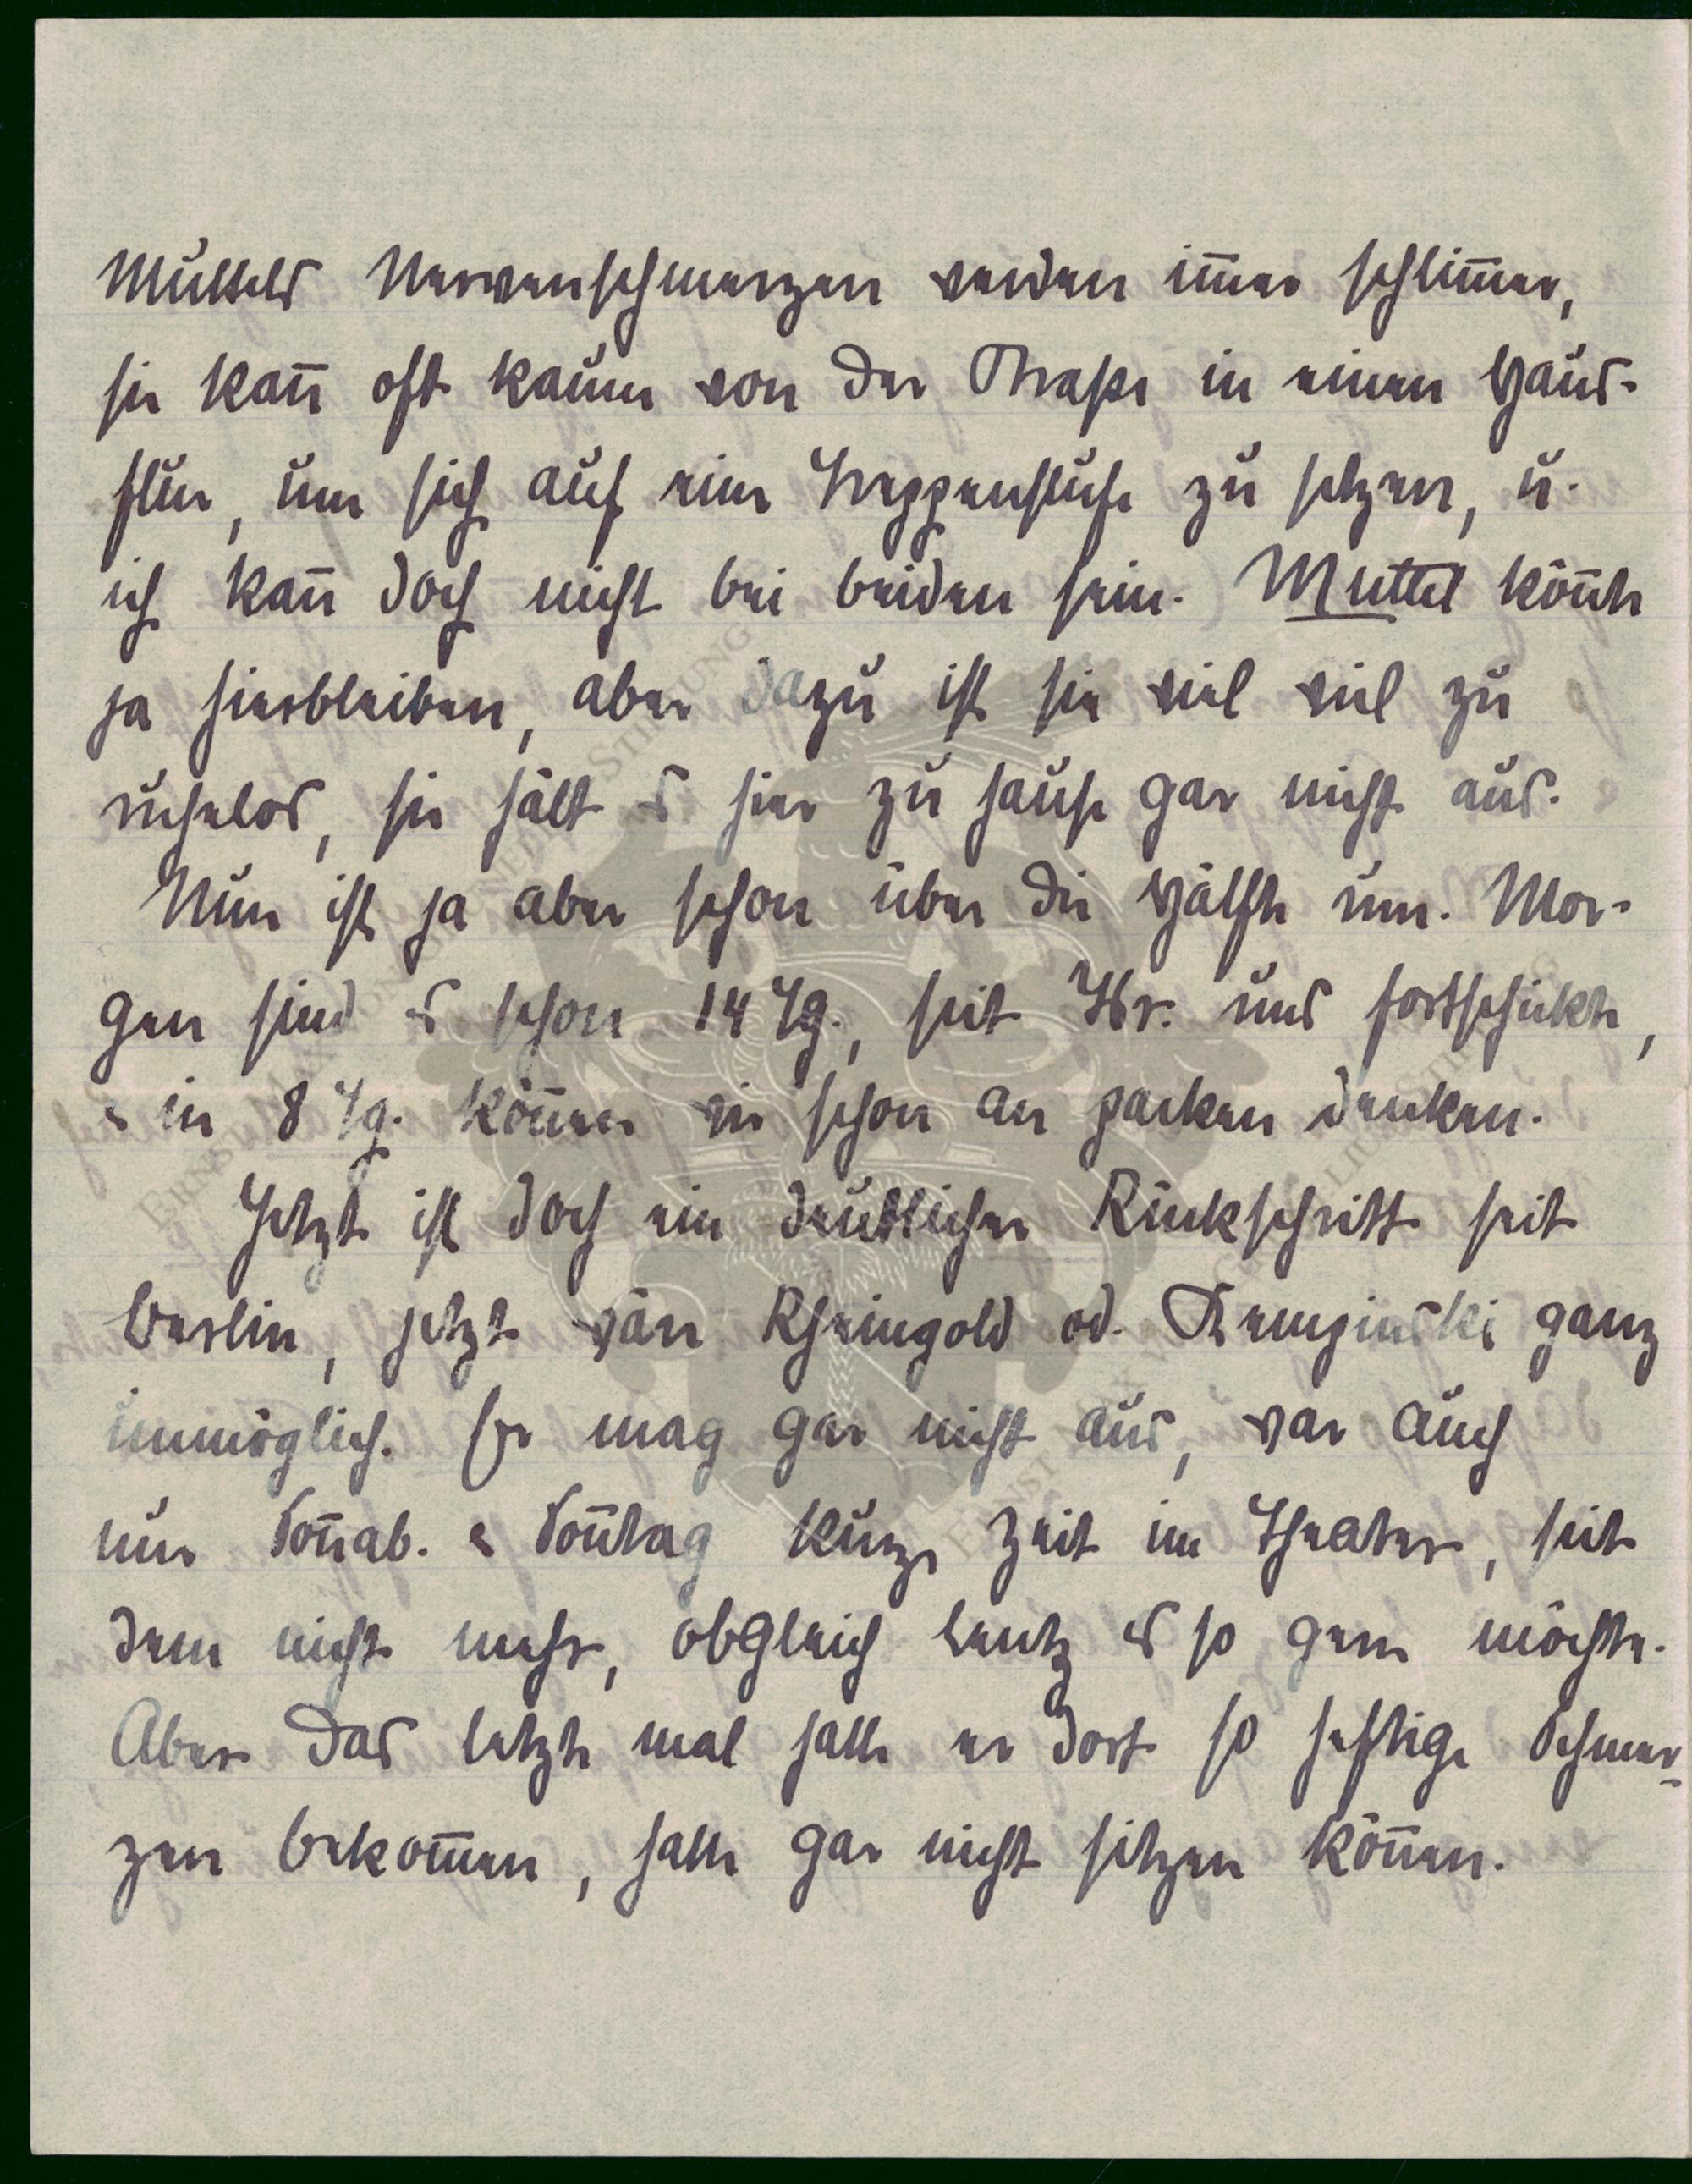 Muttels Nervenschmerzen werden im̅er schlim̅er,
sie kan̅ oft kaum von der Straße in einen Haus-
flur, um sich auf eine Treppenstufe zu setzen, u.
ich kan̅ doch nicht bei beiden sein. Muttel kön̅te
ja hierbleiben, aber dazu ist sie viel viel zu
ruhelos, sie hält es hier zu hause gar nicht aus.
Nun ist ja aber schon über die Hälfte um. Mor-
gen sind es schon 14 Tg., seit Ihr uns fortschickte,
u in 8 Tg. kön̅en wir schon an packen denken.
Jetzt ist doch ein deutlicher Rückschritt seit
Berlin, jetzt wär Rheingold od. Kempinski ganz
unmöglich. Er mag gar nicht aus, war auch
nur Son̅ab. u Son̅tag kurze Zeit im Theater, seit
dem nicht mehr, obgleich Lentz es so gern möchte.
Aber das letzte mal hatte er dort so heftige Schmer-
zen bekom̅en, hatte gar nicht sitzen kön̅en.
ERNST MAX VON GRUNELIUS-STIFTUNG